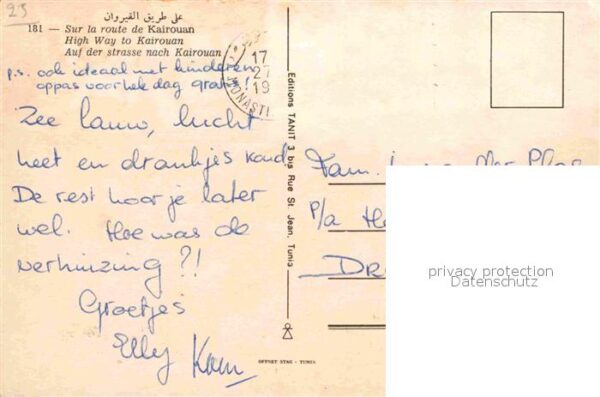 23
على طريق القيروان
181 — Sur la route de Kairouan
High Way to Kairouan
Auf der strasse nach Kairouan
p.s. ook ideaal met kinderen,
oppas voor hele dag gratis!
Zee lauw, lucht
heet en drankjes koud.
De rest hoor je later
wel. Hoe was de
verhuizing?!
Groetjes
Elly
17
27
19
MONASTI
Editions TANIT 3 bis Rue St. Jean, Tunis
OFFSET STAG - TUNIS
Fam.
p/a
privacy protection
Datenschutz